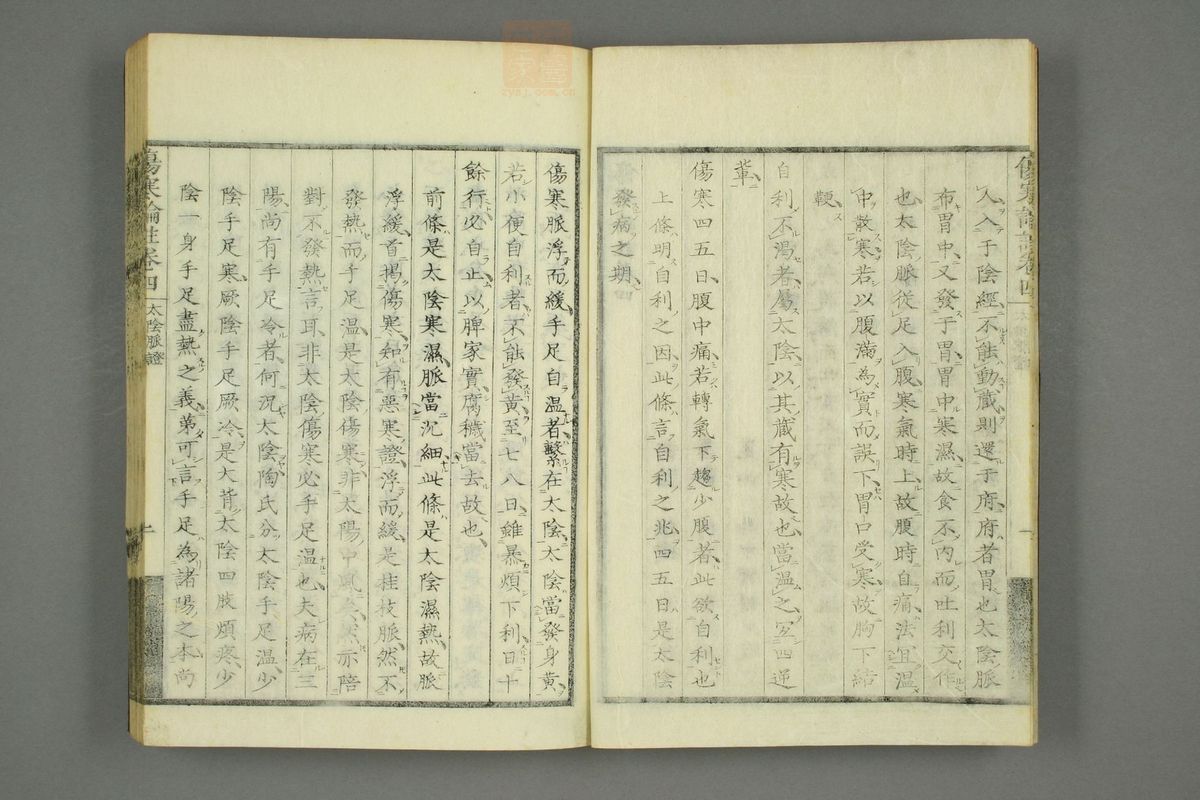 入入于陰經不能動藏則還于府府者胃也太陰脈
布胃中又發于胃胃中寒濕故食不內而吐利交作
也太陰脈從足入腹寒氣時上故腹時自痛法宜溫
中散寒若以腹滿為實而誤下胃口受寒故胸下結
鞕
自利不渴者屬太陰以其藏有寒故也當溫之宜四逆
輩
傷寒四五日腹中痛若轉氣下趨少腹者此欲自利也
上條明自利之因此條言自利之兆四五日是太陰
發病之期
傷寒脈浮而緩手足自溫者繫在太陰太陰當發身黃
若小便自利者不能發黃至七八日雖暴煩下利日十
餘行必自止以脾家實腐穢當去故也
前條是太陰寒濕脈當沉細此條是太陰濕熱故脈
浮緩首揭傷寒知有惡寒證浮而緩是桂枝脈然不
發熱而手足溫是太陰傷寒非太陽中風矣然亦暗
對不發熱言耳非太陰傷寒必手足溫也夫病在三
陽尚有手足冷者何況太陰陶氏分太陰手足溫少
陰手足寒厥陰手足厥冷是大背太陰四肢煩疼少
陰一身手足盡熱之義第可言手足為諸陽之本尚
傷寒論註卷四
太陰脈證